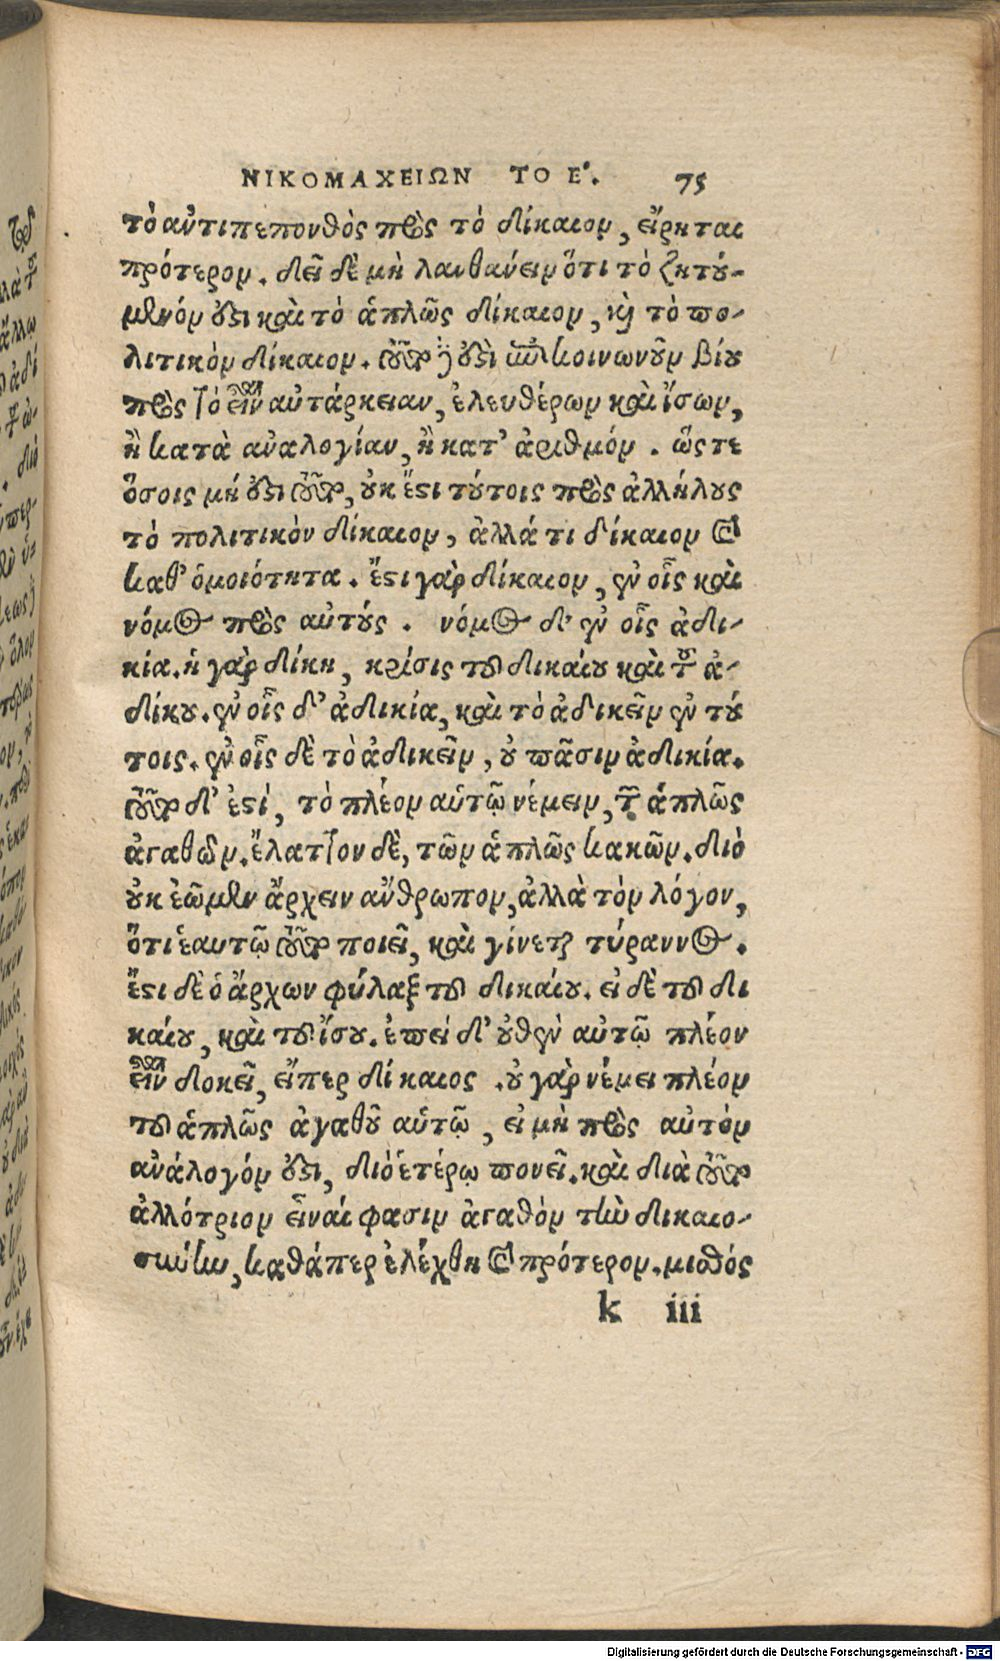 ΝΙΚΟΜΑΧΕΙΩΝ ΤΟ Ε. 75
τὸ αὐτιπεπονθὸς πρὸς τὸ δίκαιον, εἴρηται
πρότερον. δεῖ δὲ μὴ λανθάνειν ὅτι τὸ ζητού-
μενόν ὅξι καὶ τὸ ἁπλῶς δίκαιον, καὶ τὸ πο-
λιτικὸν δίκαιον. τοῦτο δ' ὅξὶ ἐπὶ κοινωνῶν βίου
πρὸς τὸ εἶναι αὐτάρκειαν, ἐλευθέρων καὶ ἴσων,
ἢ κατὰ ἀναλογίαν, ἢ κατ' ἀριθμόν. ὥστε
ὅσοις μή ὅξι τοῦτο, οὐκ ἔστι τούτοις πρὸς ἀλλήλους
τὸ πολιτικὸν δίκαιον, ἀλλά τι δίκαιον καὶ
καθ' ὁμοιότητα. ἔστι γὰρ δίκαιον, ἐν οἷς καὶ
νόμος πρὸς αὐτούς. νόμος δ' ἐν οἷς ἀδι-
κία. ἡ γὰρ δίκη, κρίσις τοῦ δικαίου καὶ τοῦ ἀ-
δίκου. ἐν οἷς δ' ἀδικία, καὶ τὸ ἀδικεῖν ἐν τού
τοις. ἐν οἷς δὲ τὸ ἀδικεῖν, οὐ πᾶσιν ἀδικία.
τοῦτο δ' ἐστί, τὸ πλέον αὑτῷ νέμειν, τῶν ἁπλῶς
ἀγαθῶν. ἔλαττον δὲ, τῶν ἁπλῶς κακῶν. διὸ
οὐκ ἐῶμεν ἄρχειν ἄνθρωπον, ἀλλὰ τὸν λόγον,
ὅτι ἑαυτῷ τοῦτο ποιεῖ, καὶ γίνεται τύραννος.
ἔστι δὲ ὁ ἄρχων φύλαξ τοῦ δικαίου. εἰ δὲ τοῦ δι
καίου, καὶ τοῦ ἴσου. ἐπεὶ δ' οὐθὲν αὐτῷ πλέον
εἶναι δοκεῖ, εἴπερ δίκαιος. οὐ γὰρ νέμει πλέον
τοῦ ἁπλῶς ἀγαθοῦ αὑτῷ, εἰ μὴ πρὸς αὐτὸν
ἀνάλογόν ὅξι, διὸ ἑτέρῳ πονεῖ. καὶ διὰ τοῦτο
ἀλλότριον εἶναί φασιν ἀγαθὸν τὴν δικαιο-
σύνην, καθάπερ ἐλέχθη καὶ πρότερον. μισθός
k iii
Digitalisierung gefördert durch die Deutsche Forschungsgemeinschaft - DFG